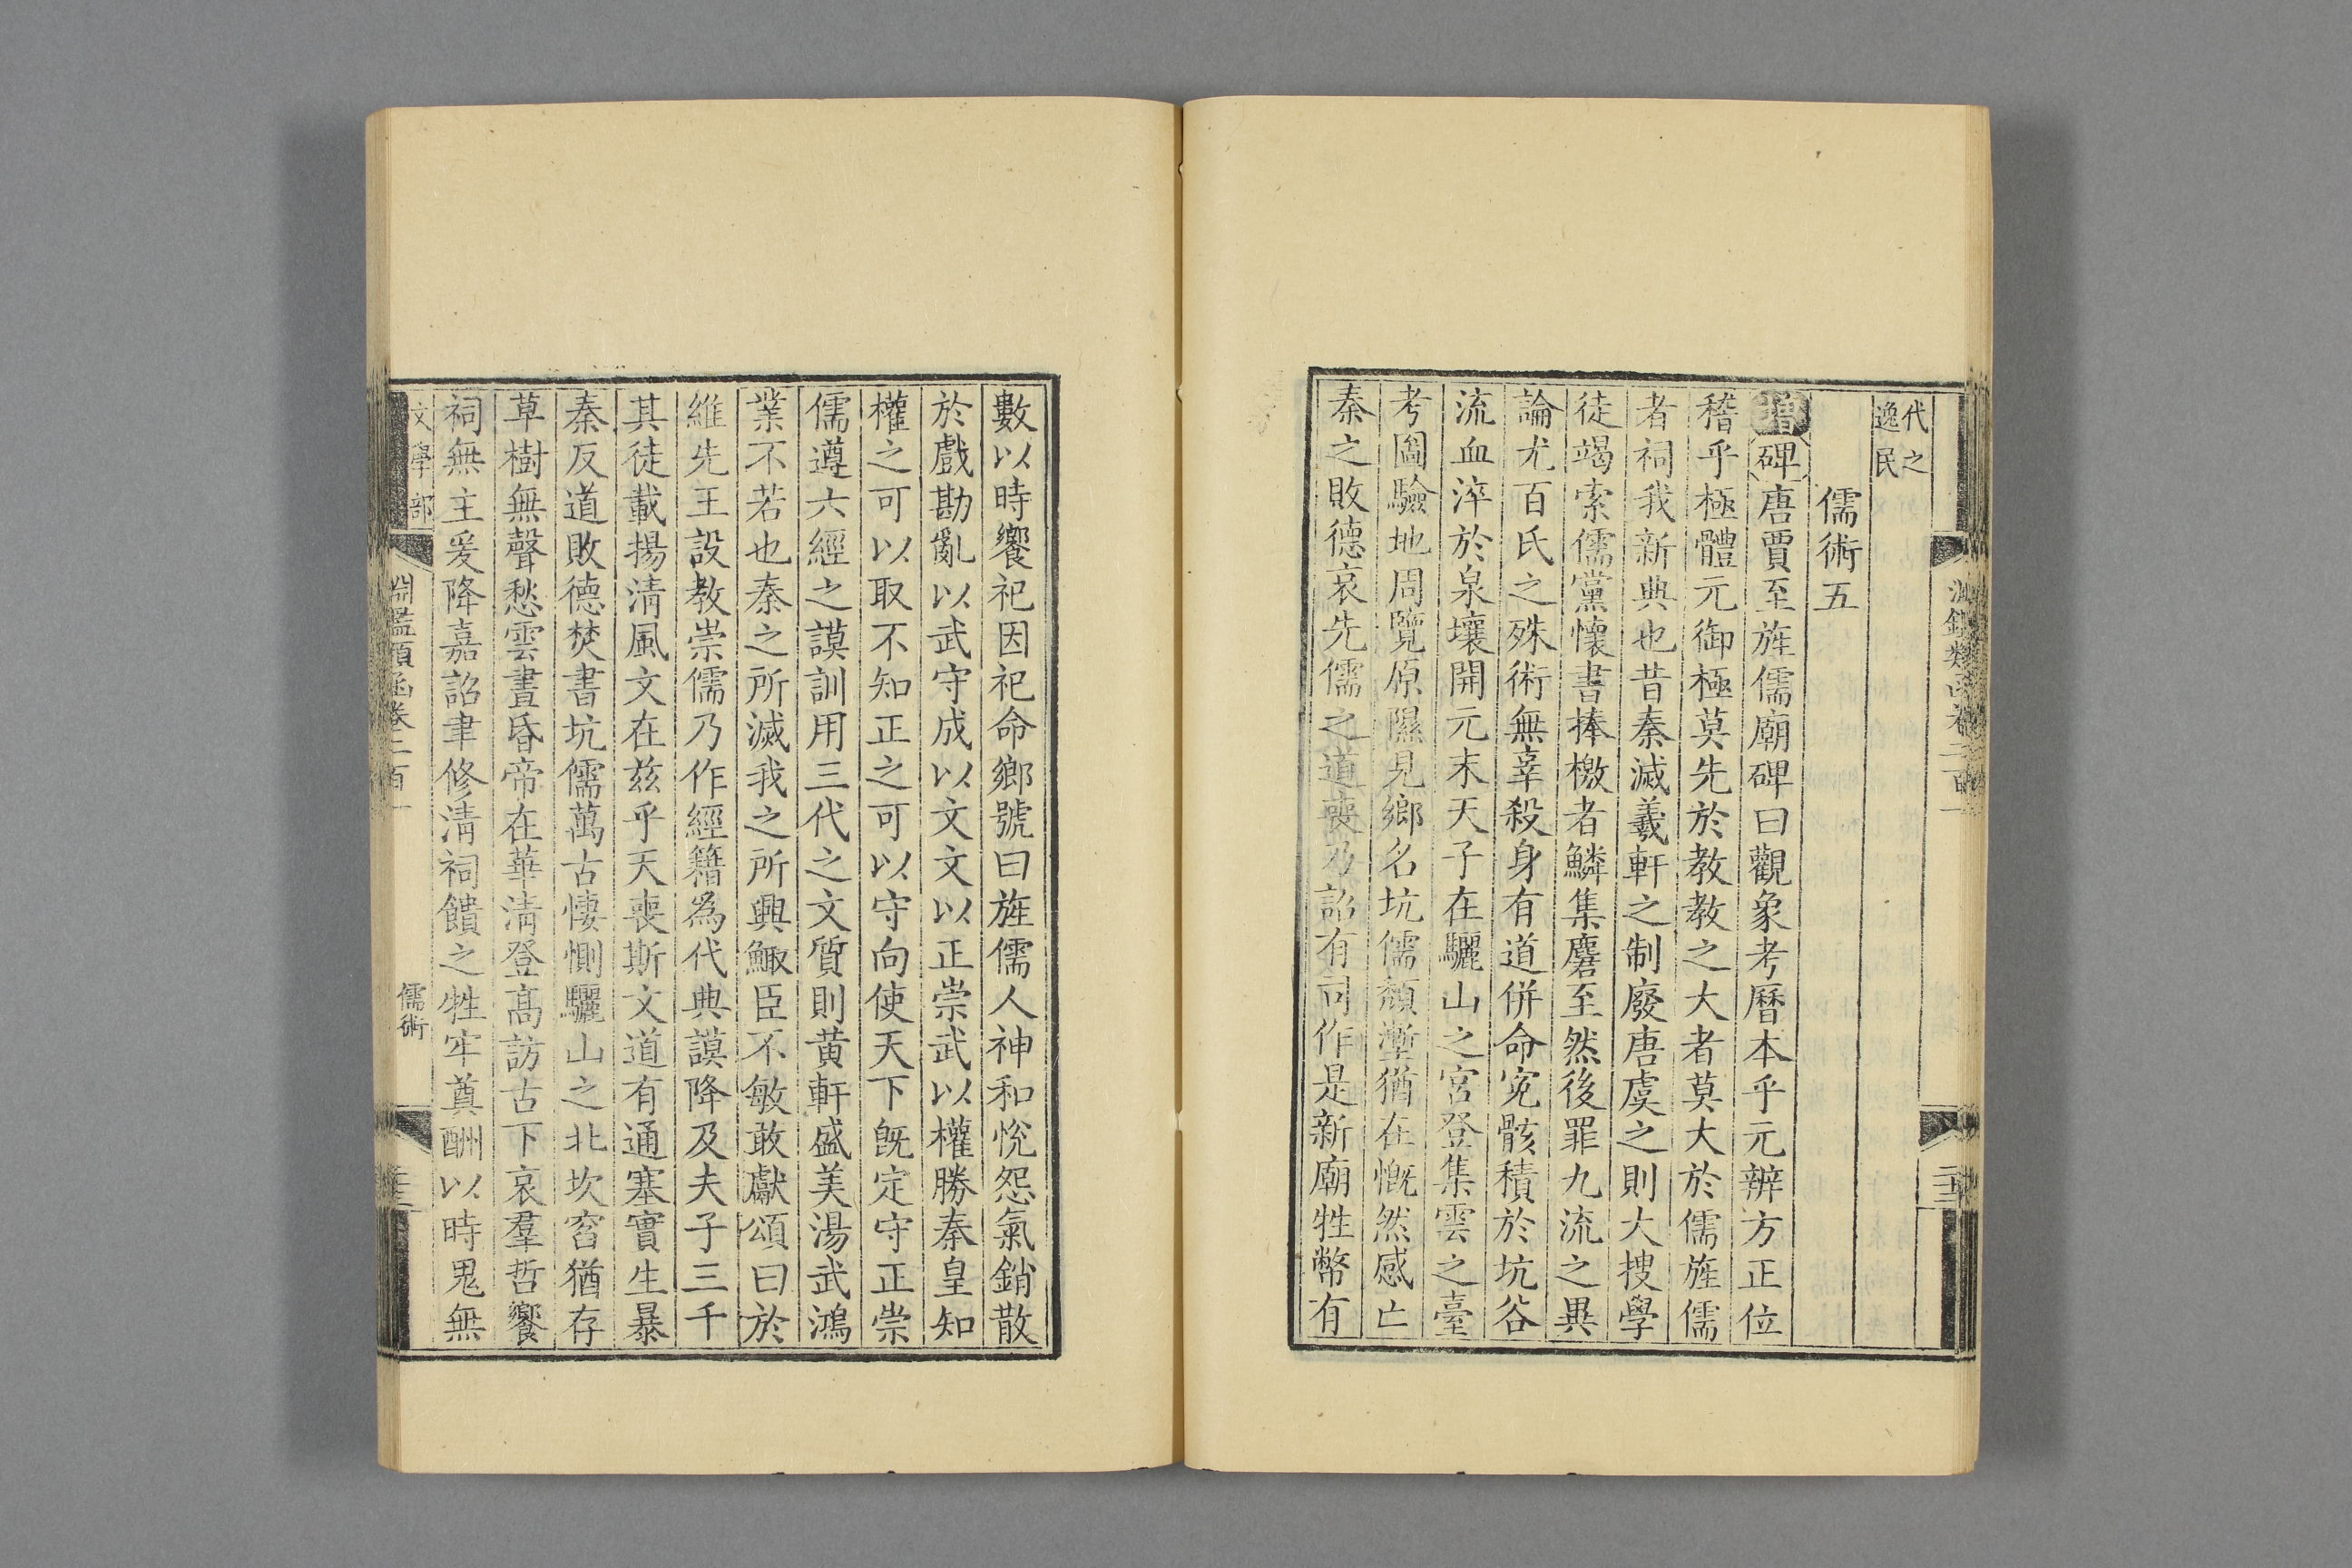 淵鑑類函卷二百一
代之
逸民
儒術五
增碑唐賈至旌儒廟碑曰觀象考曆本乎元辨方正位
稽乎極體元御極莫先於教教之大者莫大於儒旌儒
者祠我新典也昔秦滅羲軒之制廢唐虞之則大搜學
徒竭索儒黨懷書捧檄者鱗集麏至然後罪九流之異
論尤百氏之殊術無辜殺身有道併命冤骸積於坑谷
流血淬於泉壤開元末天子在驪山之宮登集雲之臺
考圖驗地周覽原隰見鄉名坑儒頹壍猶在慨然感亡
秦之敗德哀先儒之道喪乃詔有司作是新廟牲幣有
數以時饗祀因祀命鄉號曰旌儒人神和悅怨氣銷散
於戲勘亂以武守成以文文以正崇武以權勝秦皇知
權之可以取不知正之可以守向使天下既定守正崇
儒遵六經之謨訓用三代之文質則黃軒盛美湯武鴻
業不若也秦之所滅我之所興鯫臣不敏敢獻頌曰於
維先王設教崇儒乃作經籍為代典謨降及夫子三千
其徒載揚清風文在茲乎天喪斯文道有通塞實生暴
秦反道敗德焚書坑儒萬古悽惻驪山之北坎窞猶存
草樹無聲愁雲晝昏帝在華清登高訪古下哀羣哲饗
祠無主爰降嘉詔聿修清祠饋之牲牢奠酬以時鬼無
文學部
淵鑑類函卷二百一
儒術